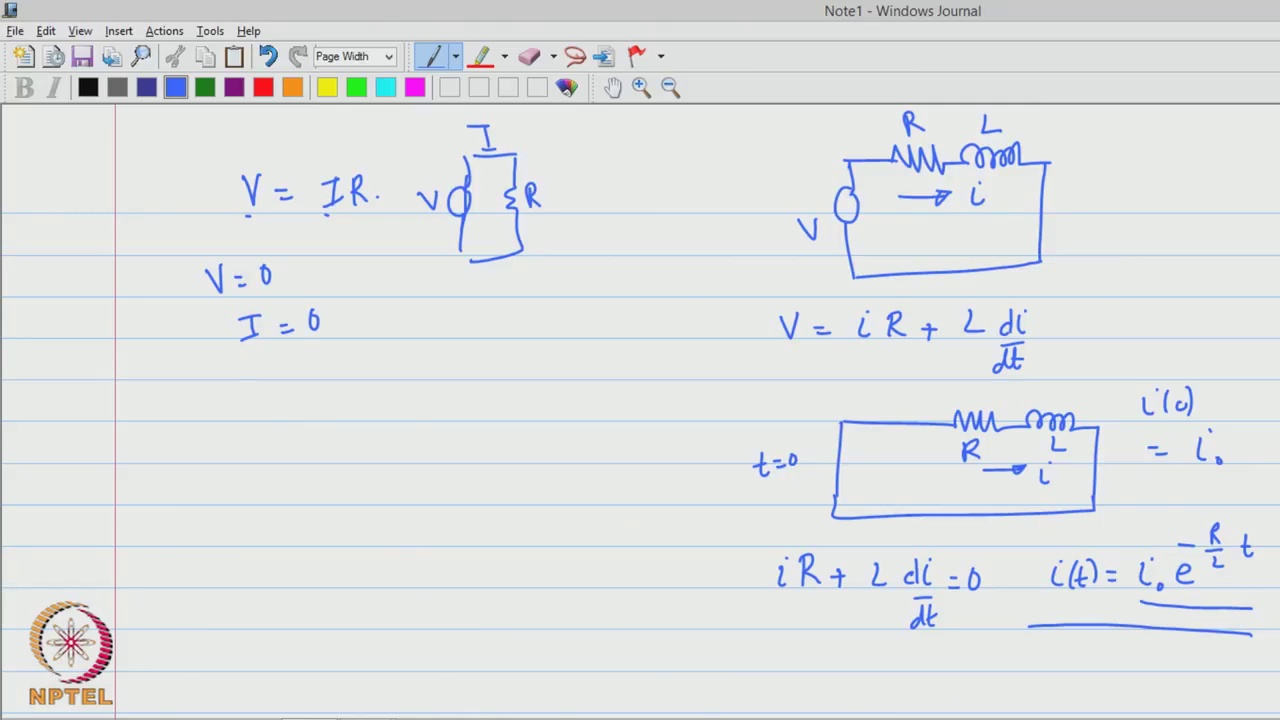 Note1 - Windows Journal
File Edit View Insert Actions Tools Help
Page Width
B I
V = IR.
I
V
R
V = 0
I = 0
R L
i
V
V = i R + L di/dt
i(0)
= i₀
t=0
R L
i
i R + L di/dt = 0
i(t) = i₀ e^(-R/L t)
NPTEL